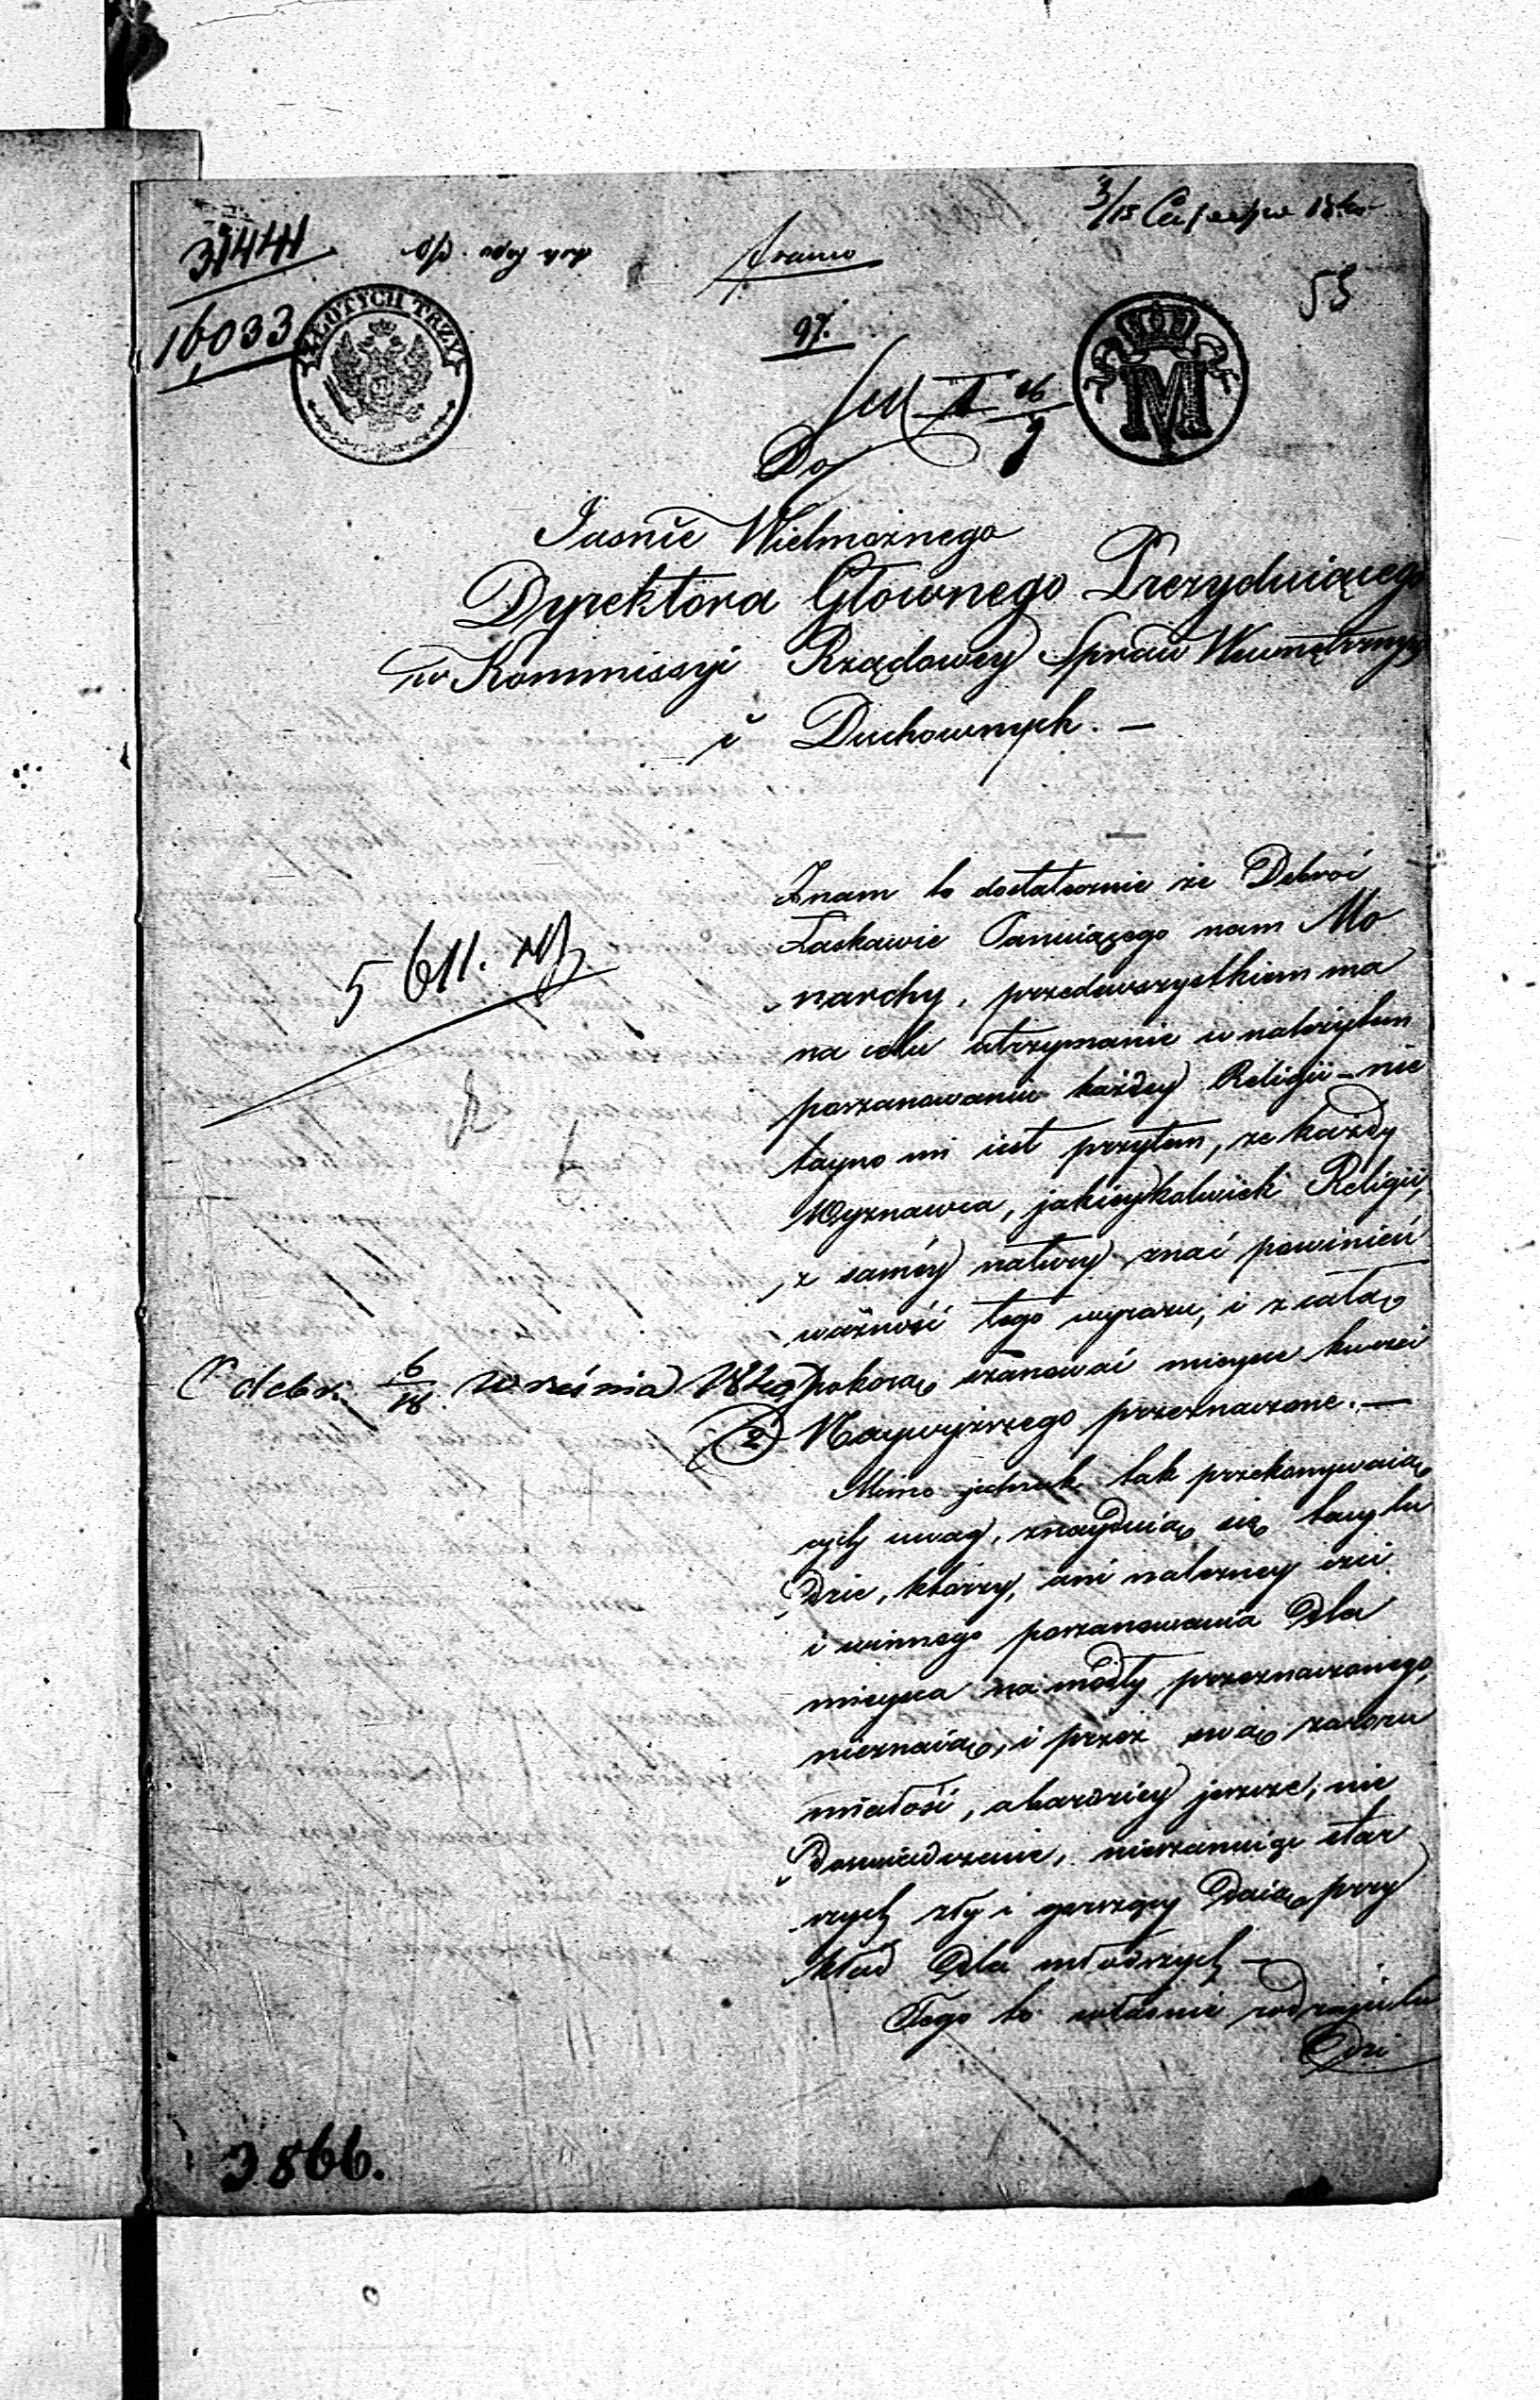 31441
16033
franco
53
97.
ZŁOTYCH TRZY
M
Do
Jasnie Wielmożnego
Dyrektora Głownego Prezyduiącego
w Kommissyi Rządowey Spraw Wewnętrznych
i Duchownych. —
Znam to dostatecznie że Dobroć
Łaskawie Panuiącego nam Mo
narchy, przedewszystkiem ma
na celu utrzymanie w należytem
poszanowaniu każdey Religii – nie
tayno mi iest przytem, że każdy
Wyznawca, jakieykolwiek Religii,
z saméy natury znać powinień
ważność tego wyrazu, i z całą
pokorą szanować mieysce ku czci
Naywyższego przeznaczone. —
5611.
Odebr. 6/18 Września 1840
2
Mimo jednak tak przekonywaią
cych uwag, znayduią się tacy lu
dzie, którzy, ani należney czci
i winnego poszanowania dla
mieysca na modły przeznaczonego,
nieznaią, i przez swą zarozu
miałość, a bardziey jeszcze, nie
doswiadczenie, nieszanuiąc star
szych zły i gorszący daią przy
kład dla młodszych —
Tego to własnie rodzaju lu
dzi
3866.